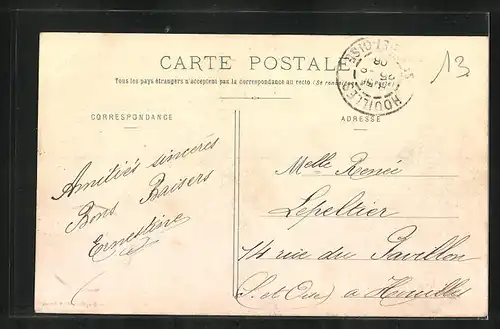 CARTE POSTALE
Tous les pays étrangers n'acceptent pas la correspondance au recto (Se
13
CORRESPONDANCE
ADRESSE
HOUILLES
Amitiés sincères
Bons Baisers
Ernestine
Melle Renée
Lepeltier
14 rue du Pavillon
(S. et Oise) a Houilles